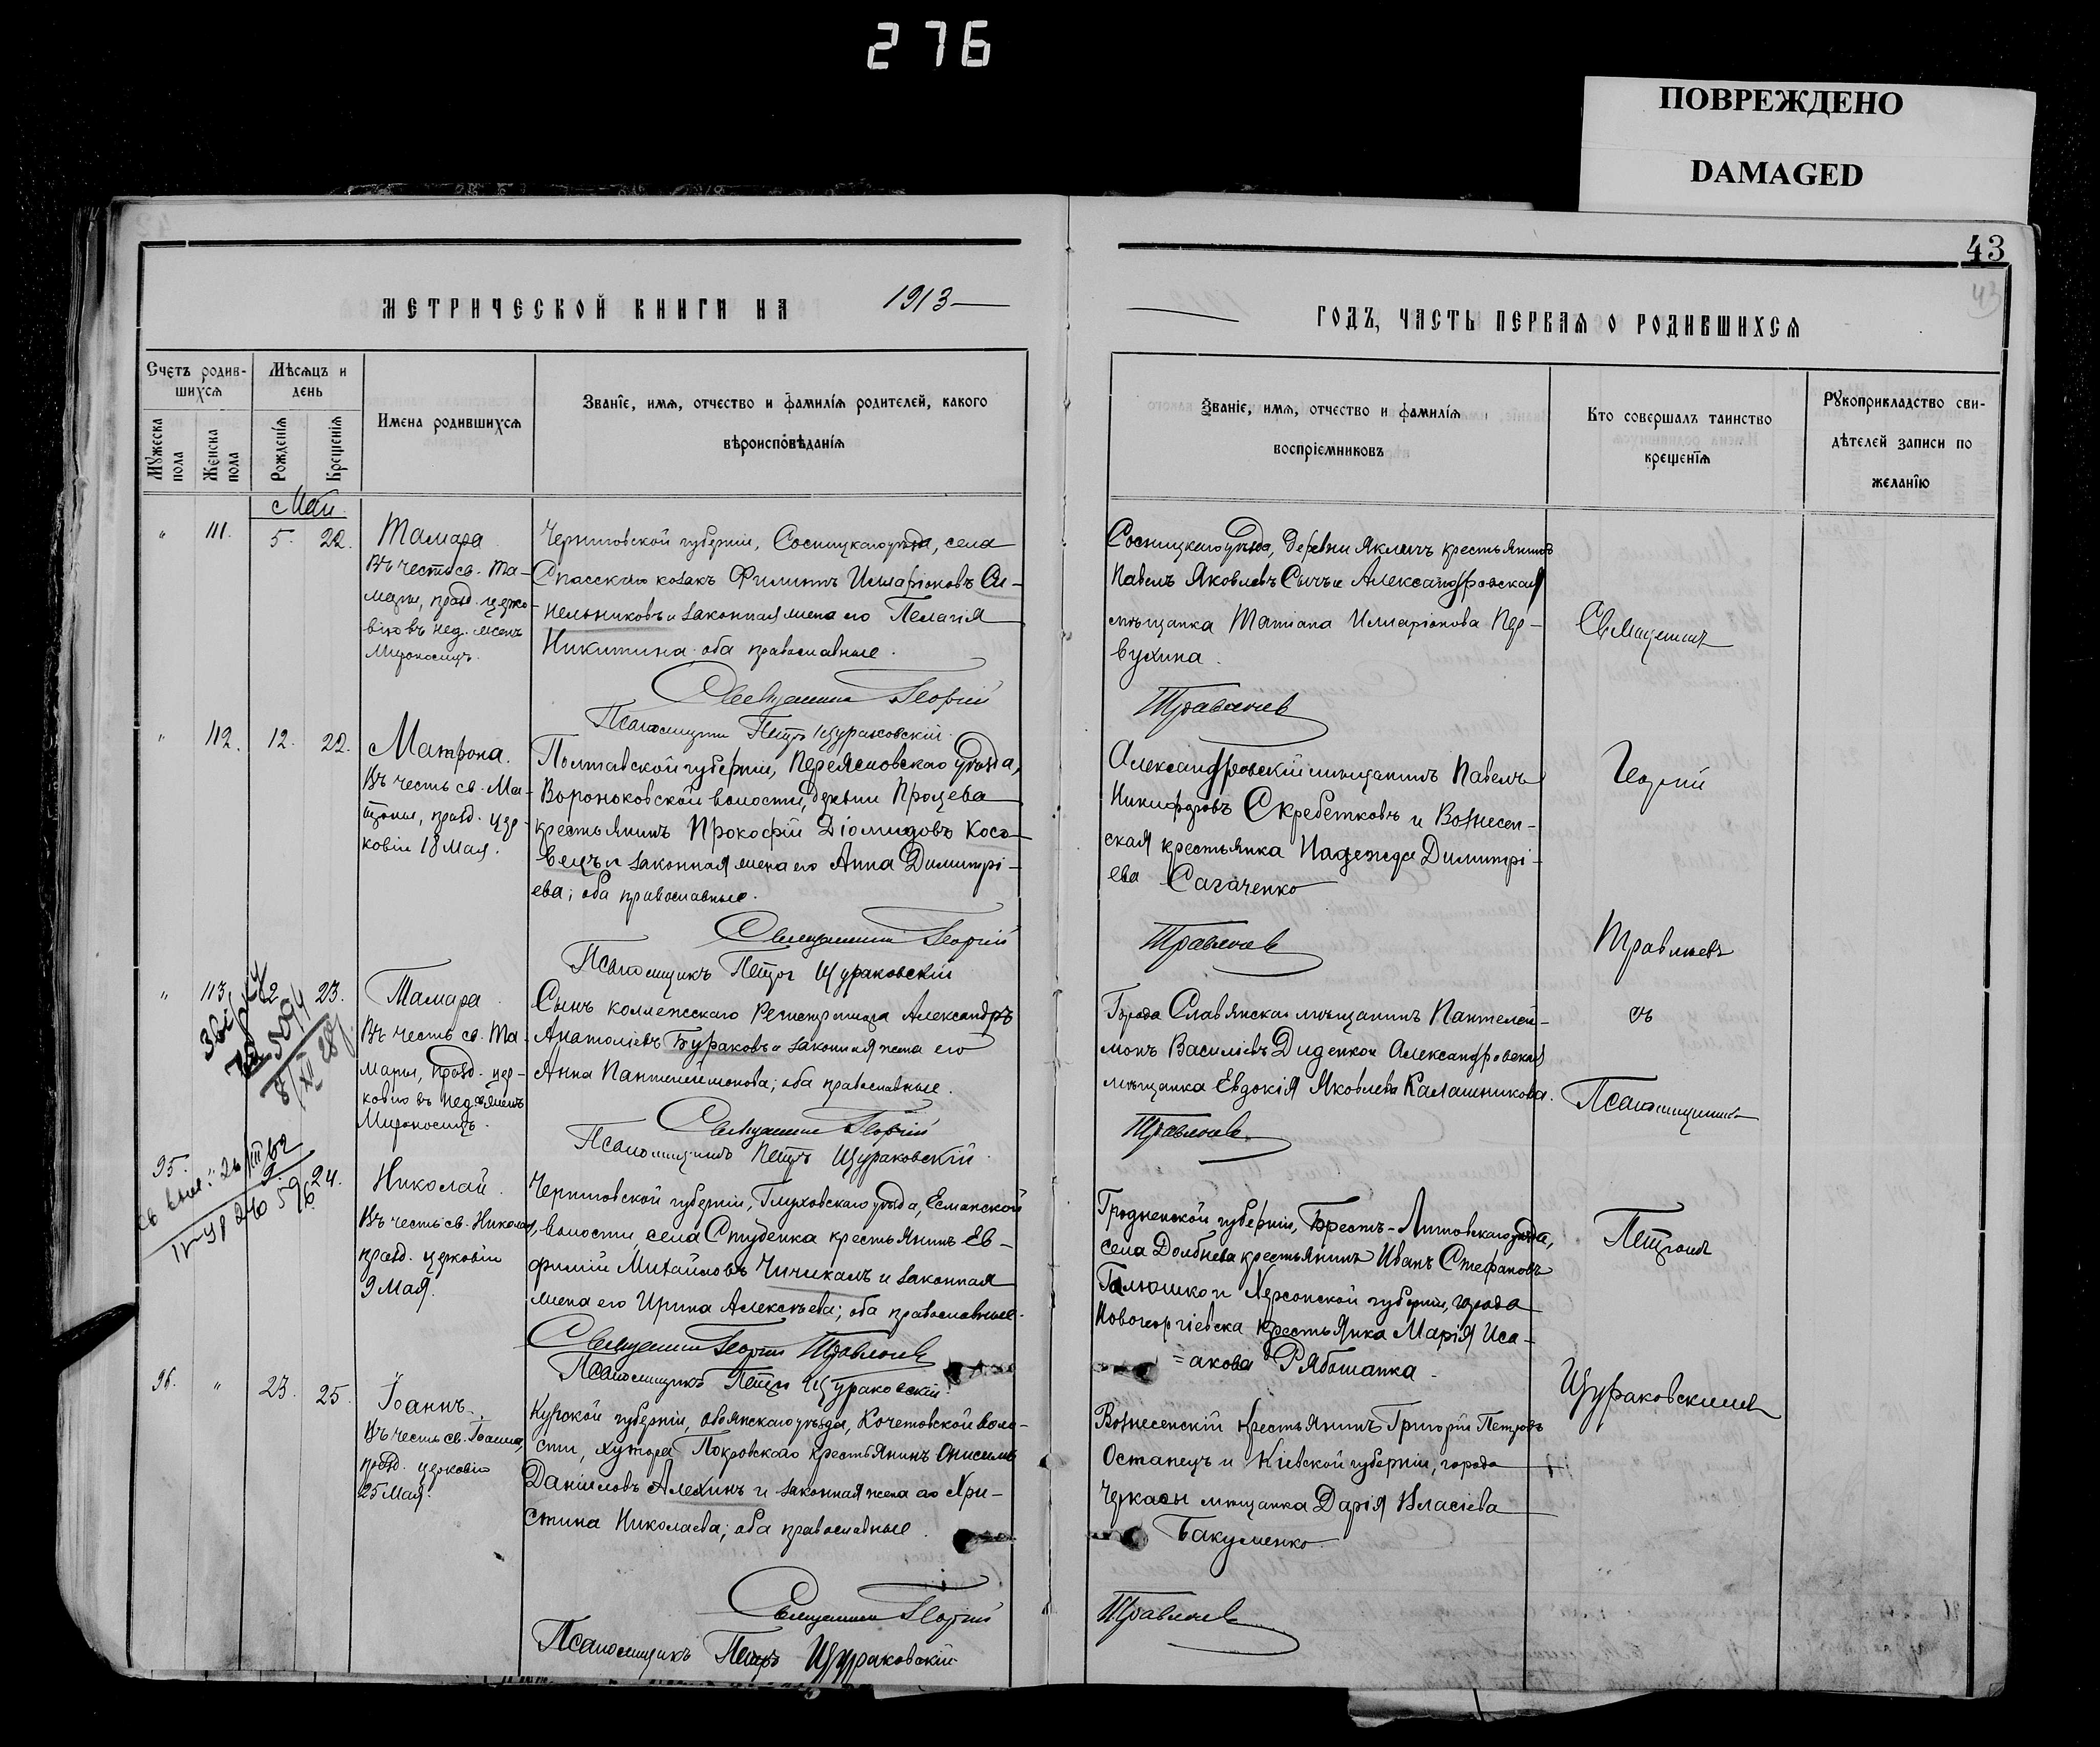 276
ПОВРЕЖДЕНО
DAMAGED
43
43
МЕТРИЧЕСКОЙ КНИГИ НА 1913
ГОДЪ, ЧАСТЬ ПЕРВАЯ О РОДИВШИХСЯ
Счетъ родив-
шихся
Мѣсяцъ и
день
Мужеска
пола
Женска
пола
Рожденія
Крещенія
Имена родившихся
Званіе, имя, отчество и фамилія родителей, какого
вѣроисповѣданія
Званіе, имя, отчество и фамилія
воспріемниковъ
Кто совершалъ таинство
крещенія
Рукоприкладство сви-
дѣтелей записи по
желанію
Май
" 111. 5. 22.
Тамара
Въ честь св. Та-
мары, празд. церко-
вію въ нед. женъ
Мироносицъ.
Черниговской губерніи, Сосницкаго уѣзда, села
Спасскаго козакъ Филиппъ Илларіоновъ Си-
нельниковъ и законная жена его Пелагія
Никитина оба православные.
Священникъ Георгій
Псаломщикъ Петръ Щураковскій
Сосницкаго уѣзда, деревни Якличъ крестьянинъ
Павелъ Яковлевъ Сычъ и Александровская
мѣщанка Татіана Илларіонова Пер-
вухина.
Травлоевъ
Священникъ
" 112. 12. 22.
Матрона.
Въ честь св. Ма-
троны, празд. цер-
ковію 18 Мая.
Полтавской губерніи, Переяславскаго уѣзда,
Вороньковской волости, деревни Процева
крестьянинъ Прокофій Діомидовъ Косо-
вецъ и законная жена его Анна Димитрі-
ева; оба православные.
Священникъ Георгій
Псаломщикъ Петръ Щураковскій
Александровскій мѣщанинъ Павелъ
Никифоровъ Скребетковъ и Вознесен-
ская крестьянка Надежда Димитрі-
ева Сагаченко
Георгій
Травлоевъ
" 113. 12. 23.
Тамара
Въ честь св. Та-
мары, празд. цер-
ковію въ нед. женъ
Мироносицъ.
Сынъ коллежскаго Регистратора Александръ
Анатоліевъ Бураковъ и законная жена его
Анна Пантелеимонова; оба православные.
Священникъ Георгій
Псаломщикъ Петръ Щураковскій
Города Славянска мѣщанинъ Пантелей-
монъ Василіевъ Диденко и Александровская
мѣщанка Евдокія Яковлева Калашникова.
Травлоевъ
съ
Псаломщикомъ
95. 9. 24.
Николай.
Въ честь св. Николая,
празд. церковію
9 Мая.
Черниговской губерніи, Глуховскаго уѣзда, Есманской
волости, села Студенка крестьянинъ Ев-
фимій Михайловъ Чичикалъ и законная
жена его Ирина Алексѣева; оба православные.
Священникъ Георгій Травлоевъ
Псаломщикъ Петръ Щураковскій
Гродненской губерніи, Брестъ-Литовскаго уѣзда,
села Долбнева крестьянинъ Иванъ Стефановъ
Галюшко и Херсонской губерніи, города
Новогеоргіевска крестьянка Марія Иса-
акова Рябошапка.
Петромъ
96. " 23. 25.
Іоаннъ.
Въ честь св. Іоанна,
празд. церковію
25 Мая.
Курской губерніи, Обоянскаго уѣзда, Кочетовской воло-
сти, хутора Покровскаго крестьянинъ Онисимъ
Даніиловъ Алехинъ и законная жена его Хри-
стина Николаева; оба православные.
Священникъ Георгій
Псаломщикъ Петръ Щураковскій
Вознесенскій крестьянинъ Григорій Петровъ
Останецъ и Кіевской губерніи, города
Черкасы мѣщанка Дарія Власіева
Бакуменко
Травлоевъ
Щураковскимъ